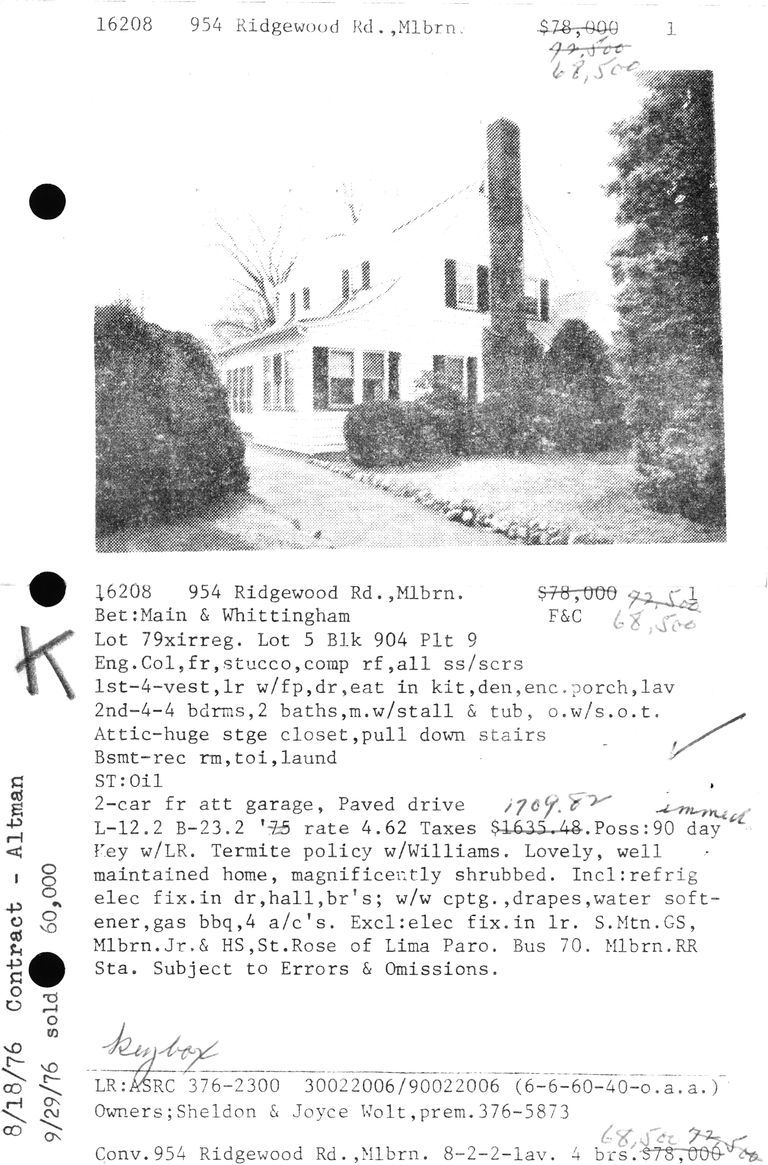 16208 954 Ridgewood Rd.,Mlbrn. $78,000 1
72,500
68,500
16208 954 Ridgewood Rd.,Mlbrn. $78,000 72,500 1
Bet:Main & Whittingham F&C 68,500
Lot 79xirreg. Lot 5 Blk 904 Plt 9
Eng.Col,fr,stucco,comp rf,all ss/scrs
1st-4-vest,lr w/fp,dr,eat in kit,den,enc.porch,lav
2nd-4-4 bdrms,2 baths,m.w/stall & tub, o.w/s.o.t.
Attic-huge stge closet,pull down stairs
Bsmt-rec rm,toi,laund
ST:Oil
2-car fr att garage, Paved drive 1709.82 immed
L-12.2 B-23.2 '75 rate 4.62 Taxes $1635.48.Poss:90 day
Key w/LR. Termite policy w/Williams. Lovely, well
maintained home, magnificently shrubbed. Incl:refrig
elec fix.in dr,hall,br's; w/w cptg.,drapes,water soft-
ener,gas bbq,4 a/c's. Excl:elec fix.in lr. S.Mtn.GS,
Mlbrn.Jr.& HS,St.Rose of Lima Paro. Bus 70. Mlbrn.RR
Sta. Subject to Errors & Omissions.
keybox
LR:ASRC 376-2300 30022006/90022006 (6-6-60-40-o.a.a.)
Owners;Sheldon & Joyce Wolt,prem.376-5873
68,500 72,500
Conv.954 Ridgewood Rd.,Mlbrn. 8-2-2-lav. 4 brs.$78,000
K
8/18/76 Contract - Altman
9/29/76 sold 60,000